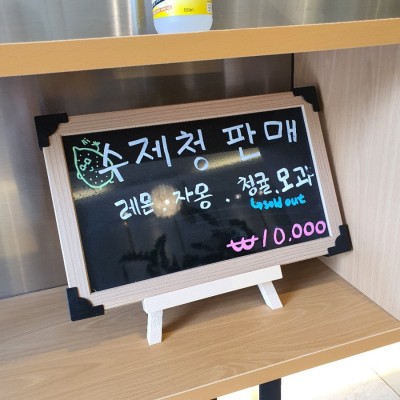 수제청 판매
레몬 . 자몽 . 청귤 . 모과
↳sold out
₩10,000